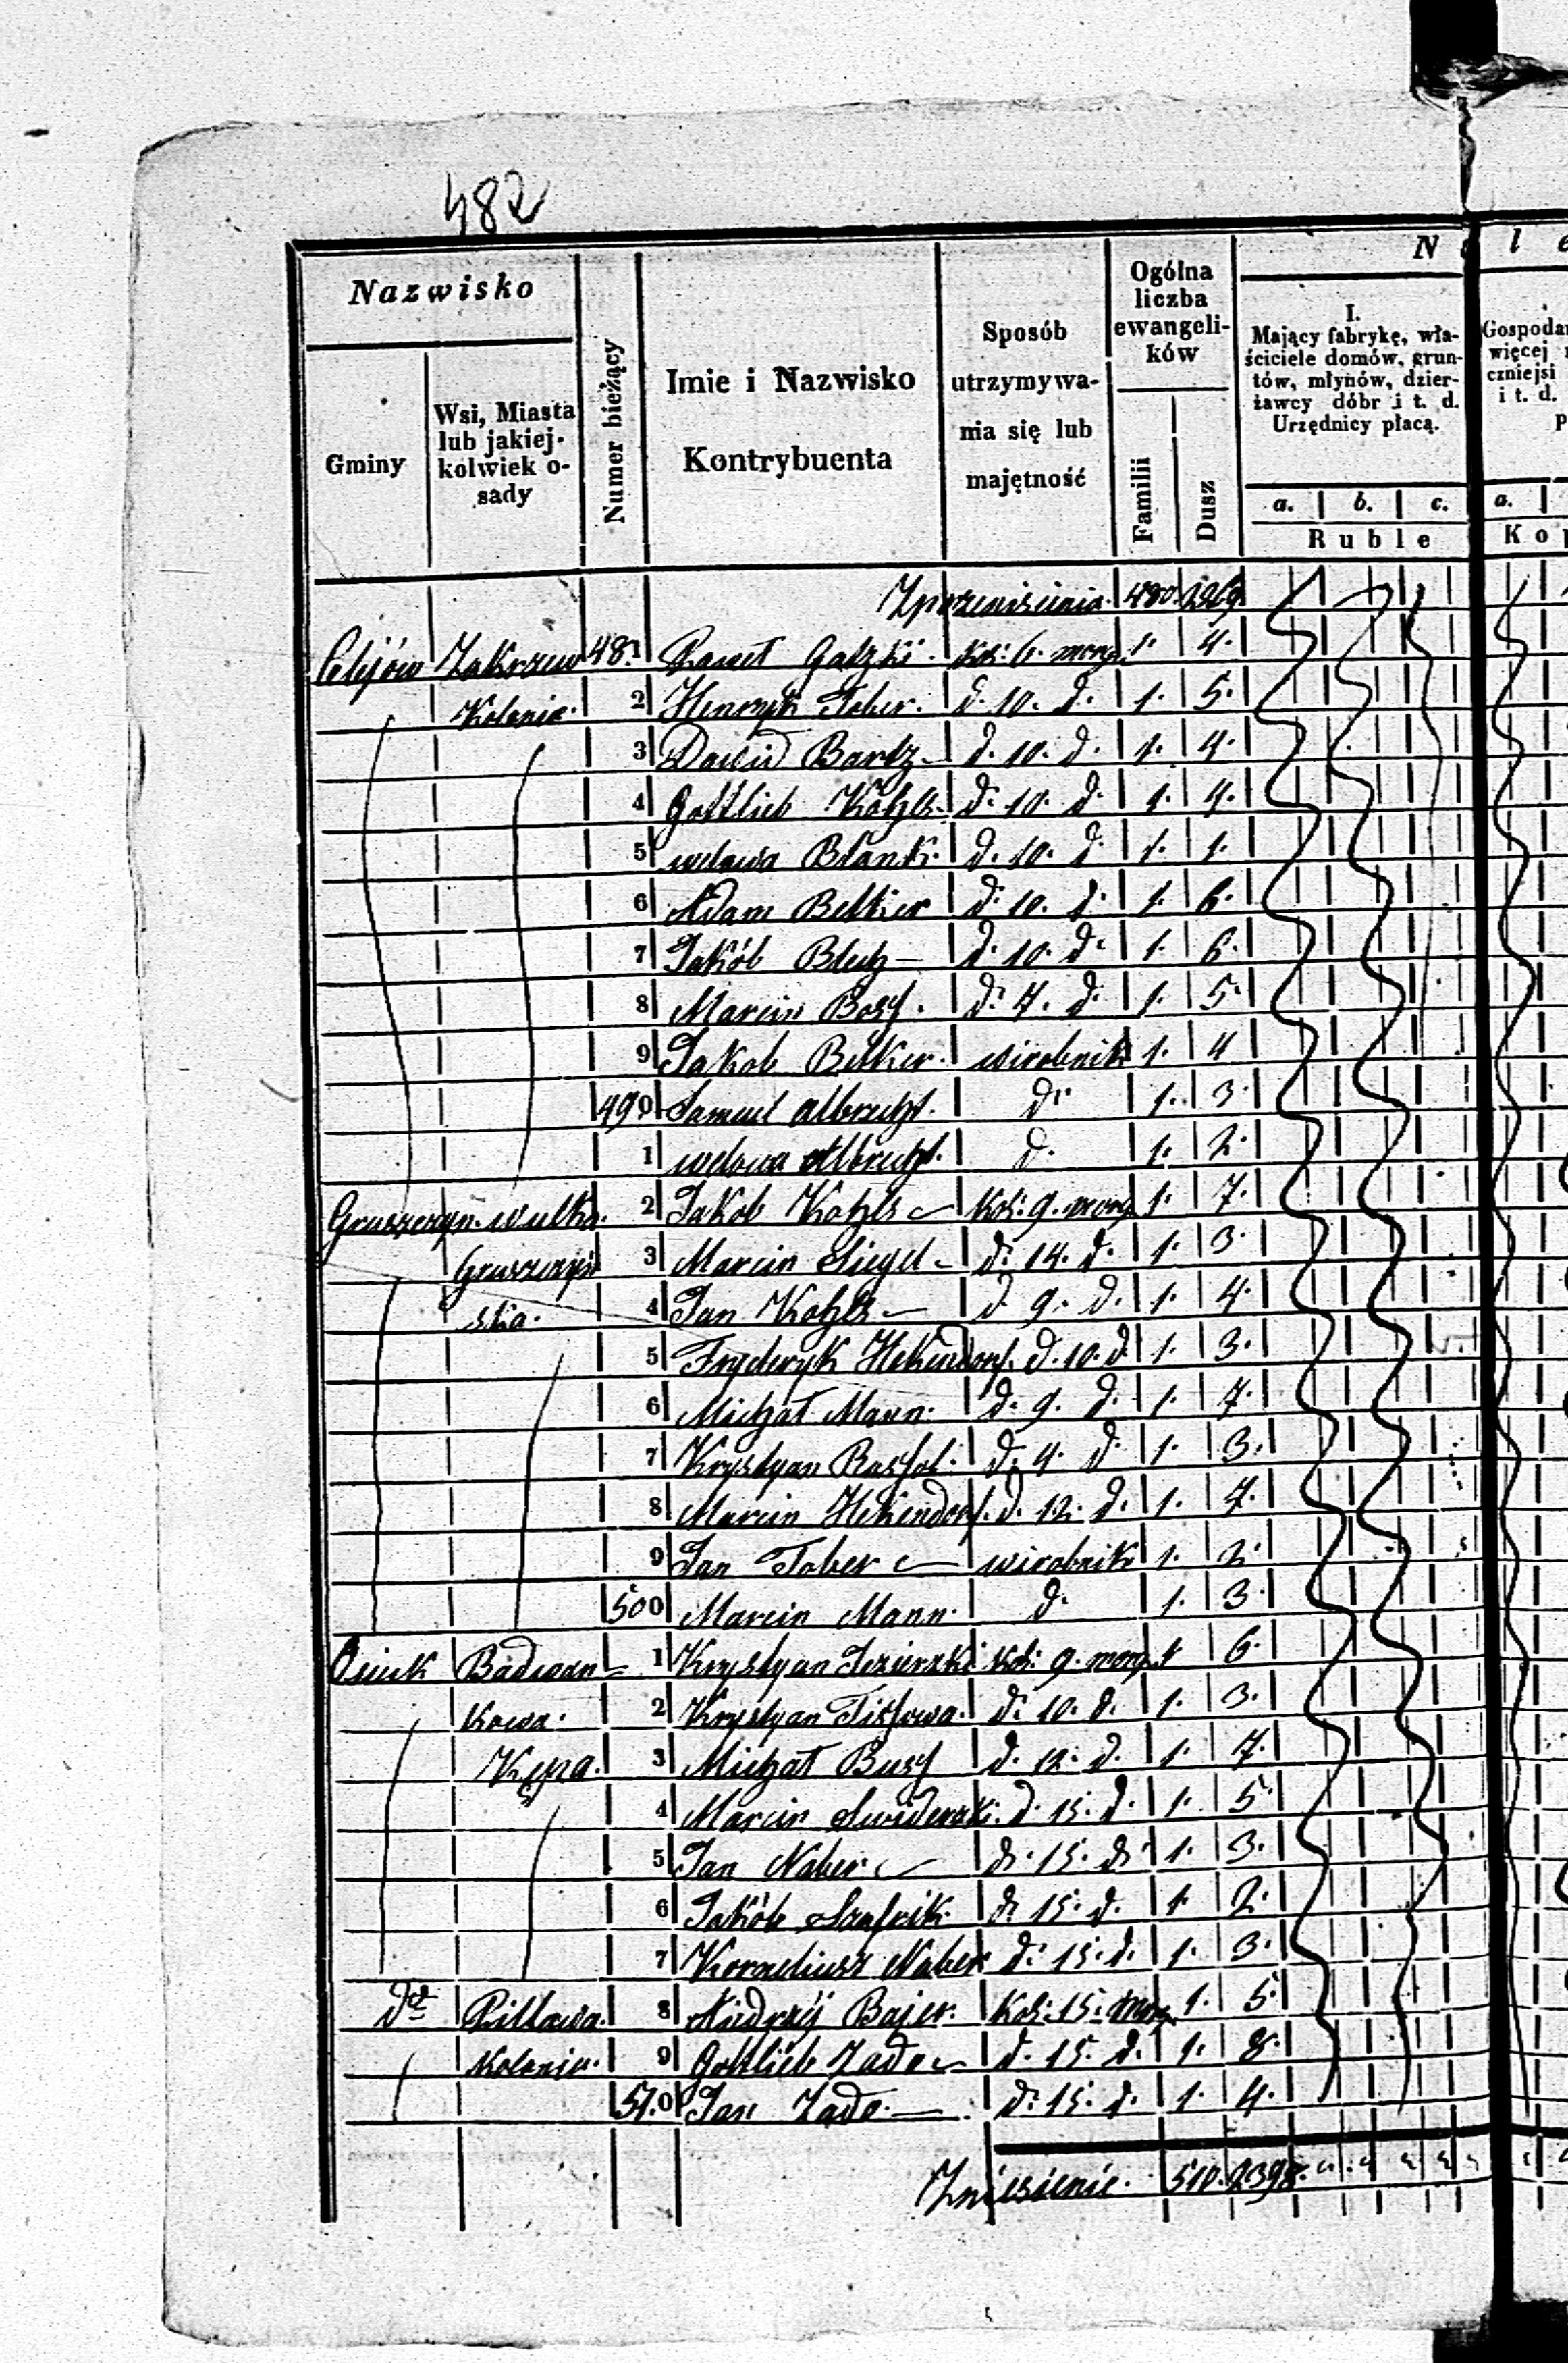 482
Nazwisko
Gminy
Wsi, Miasta lub jakiej-kolwiek o-sady
Numer bieżący
Imie i Nazwisko Kontrybuenta
Sposób utrzymywa-nia się lub majętność
Ogólna liczba ewangeli-ków
Familii
Dusz
N a l e
I. Mający fabrykę, wła-ściciele domów, grun-tów, młynów, dzier-żawcy dóbr i t. d. Urzędnicy płacą.
a. b. c.
Ruble
Gospoda
więcej
czniejsi
i t. d.
P
a.
Kop
Zprzeniesienia 480. 2269.
Celejów Zakrzew 481 Paweł Galzki. Kol: 6. morg. 1. 4.
Kolonia 2 Henryk Faber. d. 10. d. 1. 5.
3 Dawid Bartz d. 10. d. 1. 4.
4 Gottlieb Kohls d. 10. d. 1. 4.
5 wdowa Blank. d. 10. d. 1. 1.
6 Adam Betkier d. 10. d. 1. 6.
7 Jakób Blech d. 10. d. 1. 6.
8 Marcin Bosf. d. 7. d. 1. 5.
9 Jakob Betker. wirobnik 1. 4
490 Samuel Albrecht. d. 1. 3.
1 wdowa Albrecht. d. 1. 2.
Gruszczyn. Wulka 2 Jakob Kohls Kol: 9. morg 1. 7.
Gruszczyń 3 Marcin Siegel d. 14. d. 1. 3.
ska. 4 Jan Kohls d. 9. d. 1. 4.
5 Fryderyk Hekendorf. d. 10. d. 1. 3.
6 Michał Mann. d. 9. d. 1. 7.
7 Krystyan d. 4. d 1. 3.
8 Marcin Hekendorf. d. 12. d. 1. 7.
9 Jan Faber wirobnik 1. 2.
500 Marcin Mann. d. 1. 3.
Osieck 1 Krystyan Jezierski Kol: 9. morg. 1 6.
kowa. 2 Krystyan d. 10. d. 1. 3.
Kępa. 3 Michał Busf d. 12. d. 1. 7.
4 Marcin Swiderski. d. 15. d. 1. 5.
5 Jan Naber d. 15. d. 1. 3.
6 Jakób Szafrik d. 15. d. 1. 2.
7 Korneliusz Naber d. 15. d. 1. 3.
dto Pillawa. 8 Andrzéj Bajer. Kol: 15. morg. 1. 5.
Kolonia. 9 Gottlieb Zado d. 15. d. 1. 8.
510 Jan Zado. d. 15. d. 1. 4.
Zniesienie. 510. 2398.